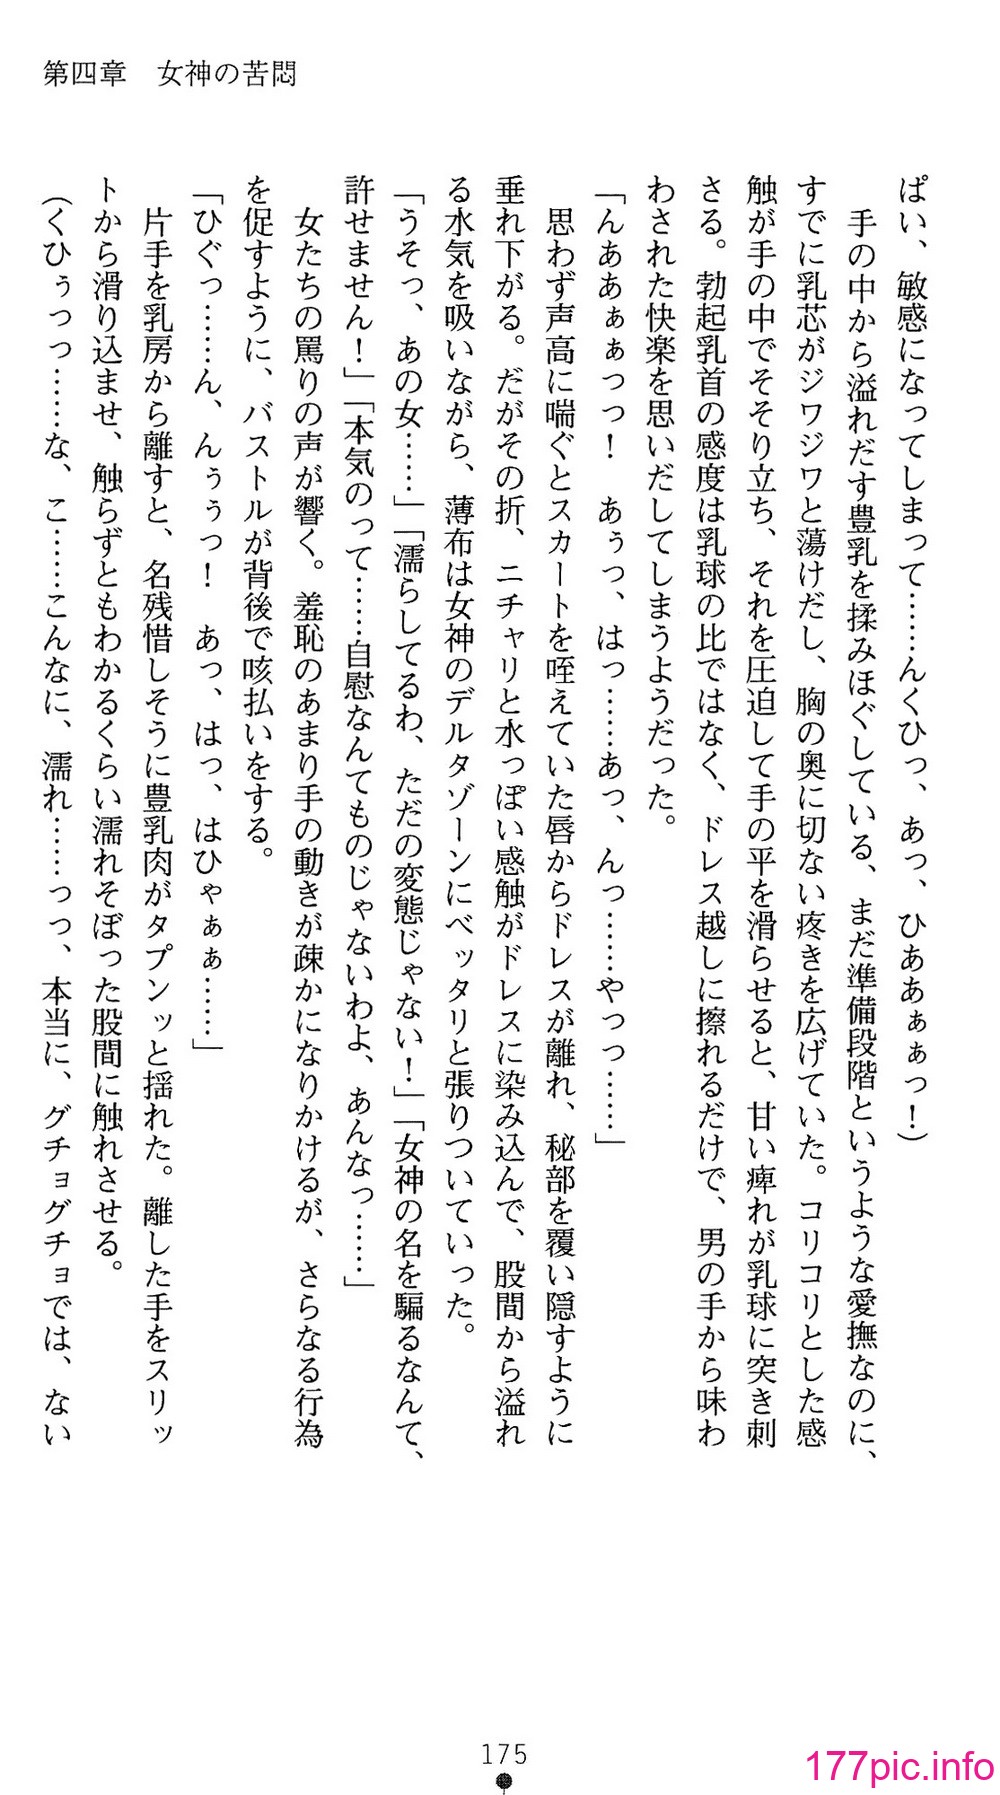 第四章　女神の苦悶
ぱい、敏感になってしまって……んくひっ、あっ、ひああぁぁっ！）
　手の中から溢れだす豊乳を揉みほぐしている、まだ準備段階というような愛撫なのに、
すでに乳芯がジワジワと蕩けだし、胸の奥に切ない疼きを広げていた。コリコリとした感
触が手の中でそそり立ち、それを圧迫して手の平を滑らせると、甘い痺れが乳球に突き刺
さる。勃起乳首の感度は乳球の比ではなく、ドレス越しに擦れるだけで、男の手から味わ
わされた快楽を思いだしてしまうようだった。
「んああぁぁっっ！　あぅっ、はっ……あっ、んっ……やっっ……」
　思わず声高に喘ぐとスカートを咥えていた唇からドレスが離れ、秘部を覆い隠すように
垂れ下がる。だがその折、ニチャリと水っぽい感触がドレスに染み込んで、股間から溢れ
る水気を吸いながら、薄布は女神のデルタゾーンにベッタリと張りついていった。
「うそっ、あの女……」「濡らしてるわ、ただの変態じゃない！」「女神の名を騙るなんて、
許せません！」「本気のって……自慰なんてものじゃないわよ、あんなっ……」
　女たちの罵りの声が響く。羞恥のあまり手の動きが疎かになりかけるが、さらなる行為
を促すように、バストルが背後で咳払いをする。
「ひぐっ……ん、んぅぅっ！　あっ、はっ、はひゃぁぁ……」
　片手を乳房から離すと、名残惜しそうに豊乳肉がタプンッと揺れた。離した手をスリッ
トから滑り込ませ、触らずともわかるくらい濡れそぼった股間に触れさせる。
（くひぅっっ……な、こ……こんなに、濡れ……っっ、本当に、グチョグチョでは、ない
175
177pic.info